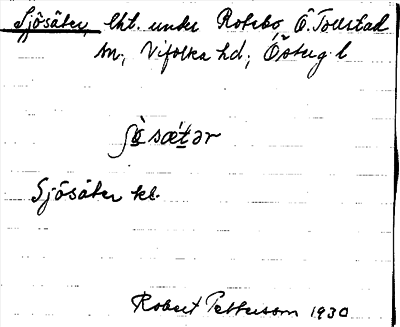 Sjösäter, lht. under Rotebo Ö. Tollstad
sn., Vifolka hd; Österg. l
ʃø̀ sæ̀tər
Sjösäter kl.
Robert Pettersson 1930